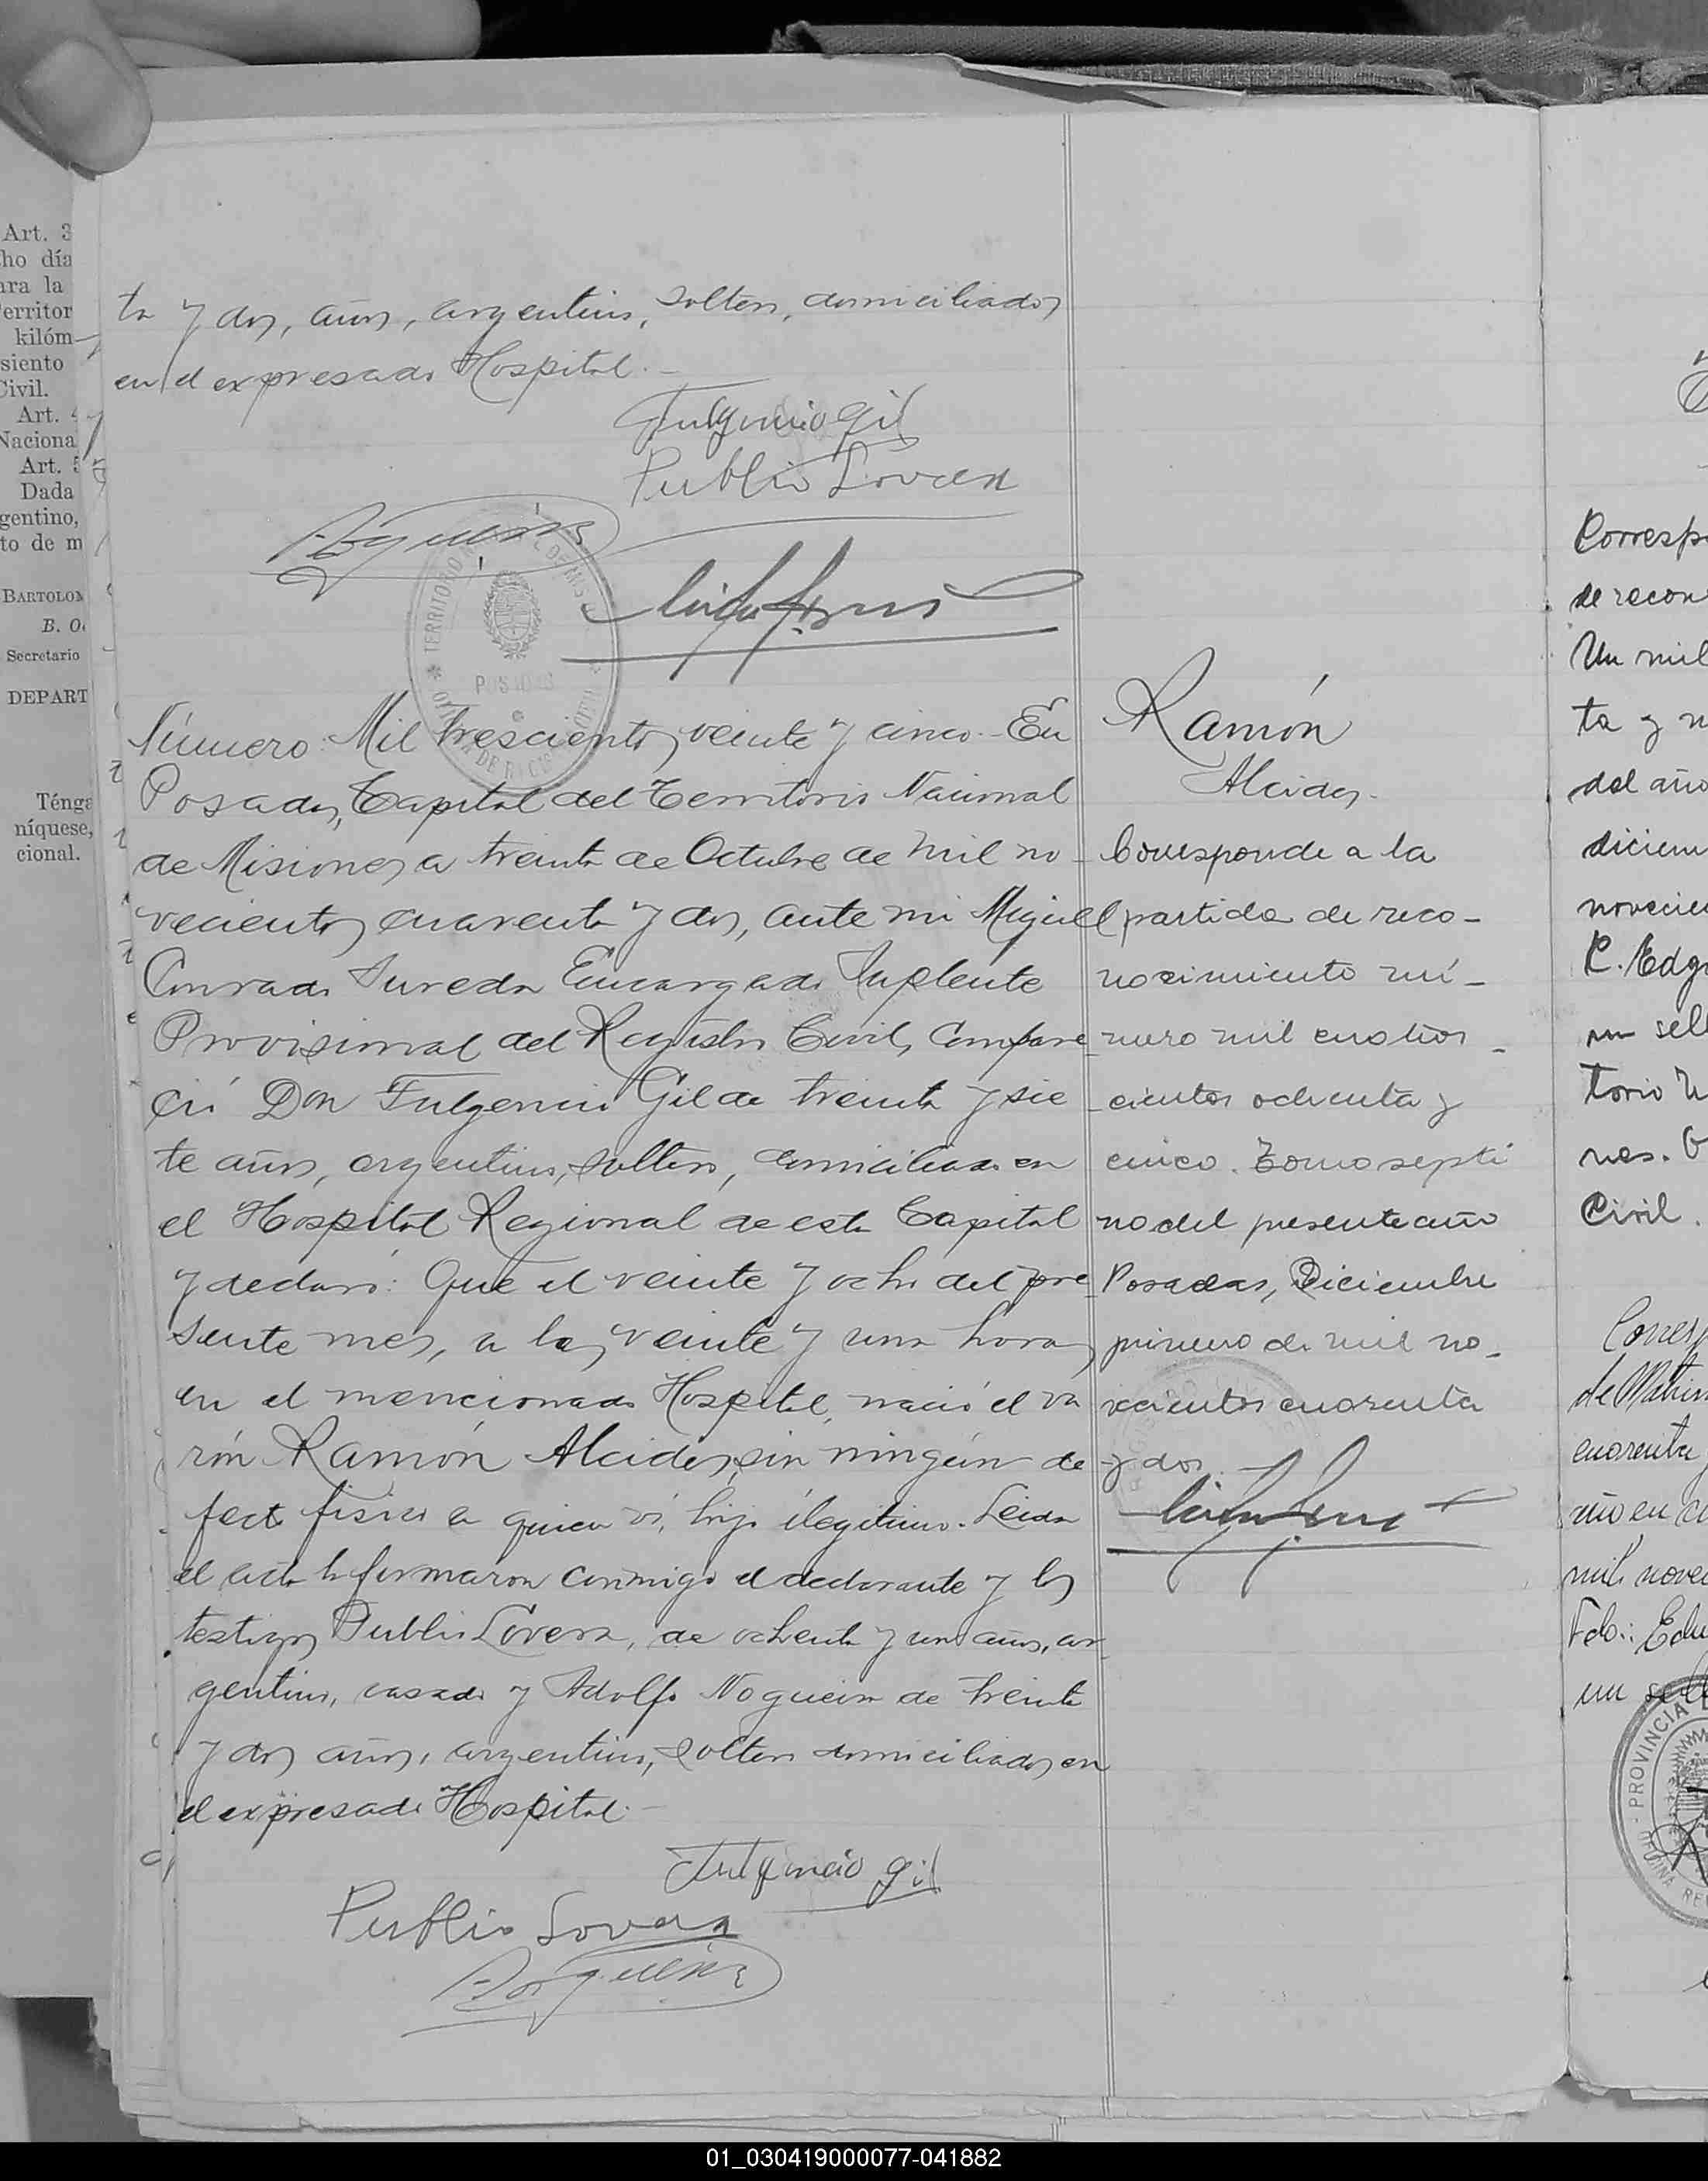 Art. 3
ho día
ara la
Territor
kilóm
siento
Civil.
Art. 4
Naciona
Art. 5
Dada
gentino,
to de m
BARTOLOM
B. O
Secretario
DEPART
Ténga
níquese,
cional.
ta y dos, años, argentino, soltero, domiciliados
en el expresado Hospital.-
Fulgencio Gil
Publio Lovera
POSADAS
Número: Mil trescientos veinte y cinco.- En
Posadas, Capital del Territorio Nacional
de Misiones a treinta de Octubre de mil no-
vecientos cuarenta y dos, ante mi Miguel
Conrado Sureda Encargado Suplente
Provisional del Registro Civil, compare-
ció Don Fulgencio Gil de treinta y sie
te años, argentino, soltero, domiciliado en
el Hospital Regional de esta Capital
y declaró: Que el veinte y ocho del pre-
sente mes, a las veinte y una horas
en el mencionado Hospital, nació el va
rón Ramón Alcides, sin ningún de
fecto físico a quien ví, hijo ilegítimo. Leida
el acta la firmaron conmigo el declarante y los
testigos Publio Lovera, de ochenta y un años, ar-
gentino, casado y Adolfo Nogueira de treinta
y dos años, argentino, soltero domiciliados en
el expresado Hospital.-
Fulgencio Gil
Publio Lovera
Ramón
Alcides.-
Corresponde a la
partida de reco-
nocimiento nú-
mero mil cuatros-
cientos ochenta y
cinco. Tomo septi
mo del presente año
Posadas, Diciembre
primero de mil no-
vecientos cuarenta
y dos.
Corresp
de recon
Un mil
ta y n
del año
diciem
novecie
C. Edg
un sell
torio N
nes. O
Civil.
Corresp
de Matrim
cuarenta
año en c
mil nove
Fdo.: Edu
un sell
PROVINCIA
OFICINA RE
01_030419000077-041882